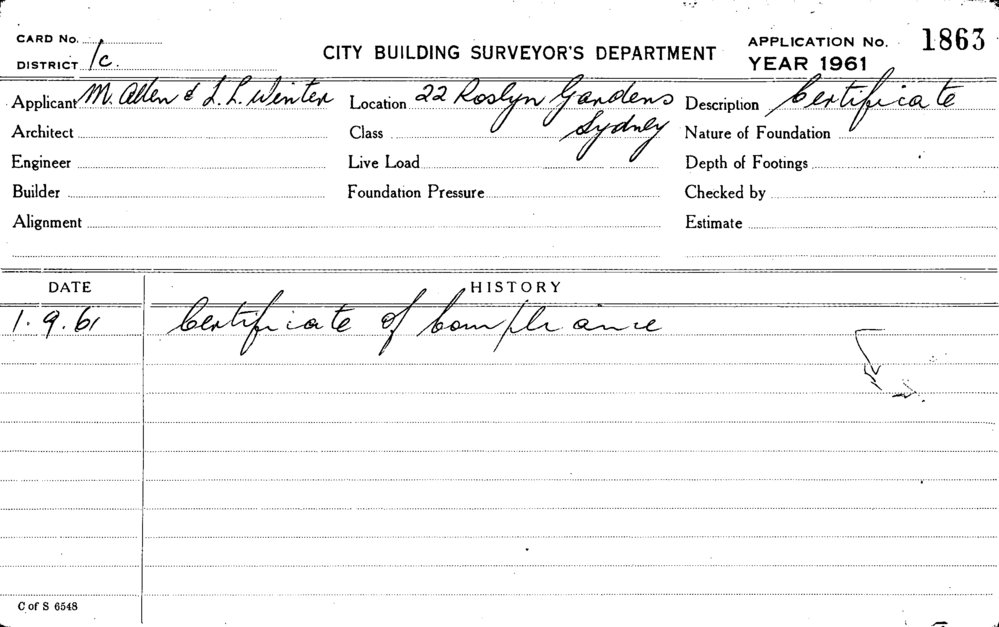 CARD No.
DISTRICT 1c.
CITY BUILDING SURVEYOR'S DEPARTMENT
APPLICATION No. 1863
YEAR 1961
Applicant M. Allen & L. L. Winter Location 22 Roslyn Gardens Description Certificate
Architect Class Sydney Nature of Foundation
Engineer Live Load Depth of Footings
Builder Foundation Pressure Checked by
Alignment Estimate
DATE HISTORY
1.9.61 Certificate of Compliance
C of S 6548